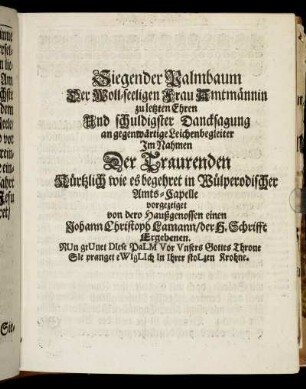 Siegender Palmbaum
Der Woll-seeligen Frau Amtmännin
zu letzten Ehren
Und schuldigster Dancksagung
an gegenwärtige Leichenbegleiter
Im Nahmen
Der Traurenden
Kürtzlich wie es begehret in Wülperodischer
Amts-Capelle
vorgezeiget
von dero Haußgenossen einen
Johann Christoph Lamann/der H. Schrifft
Ergebenen.
NUn grUnet DIese PaLM Vor Vnsers Gottes Throne
SIe pranget eWIgLIch In Ihrer stoLzen Krohne.